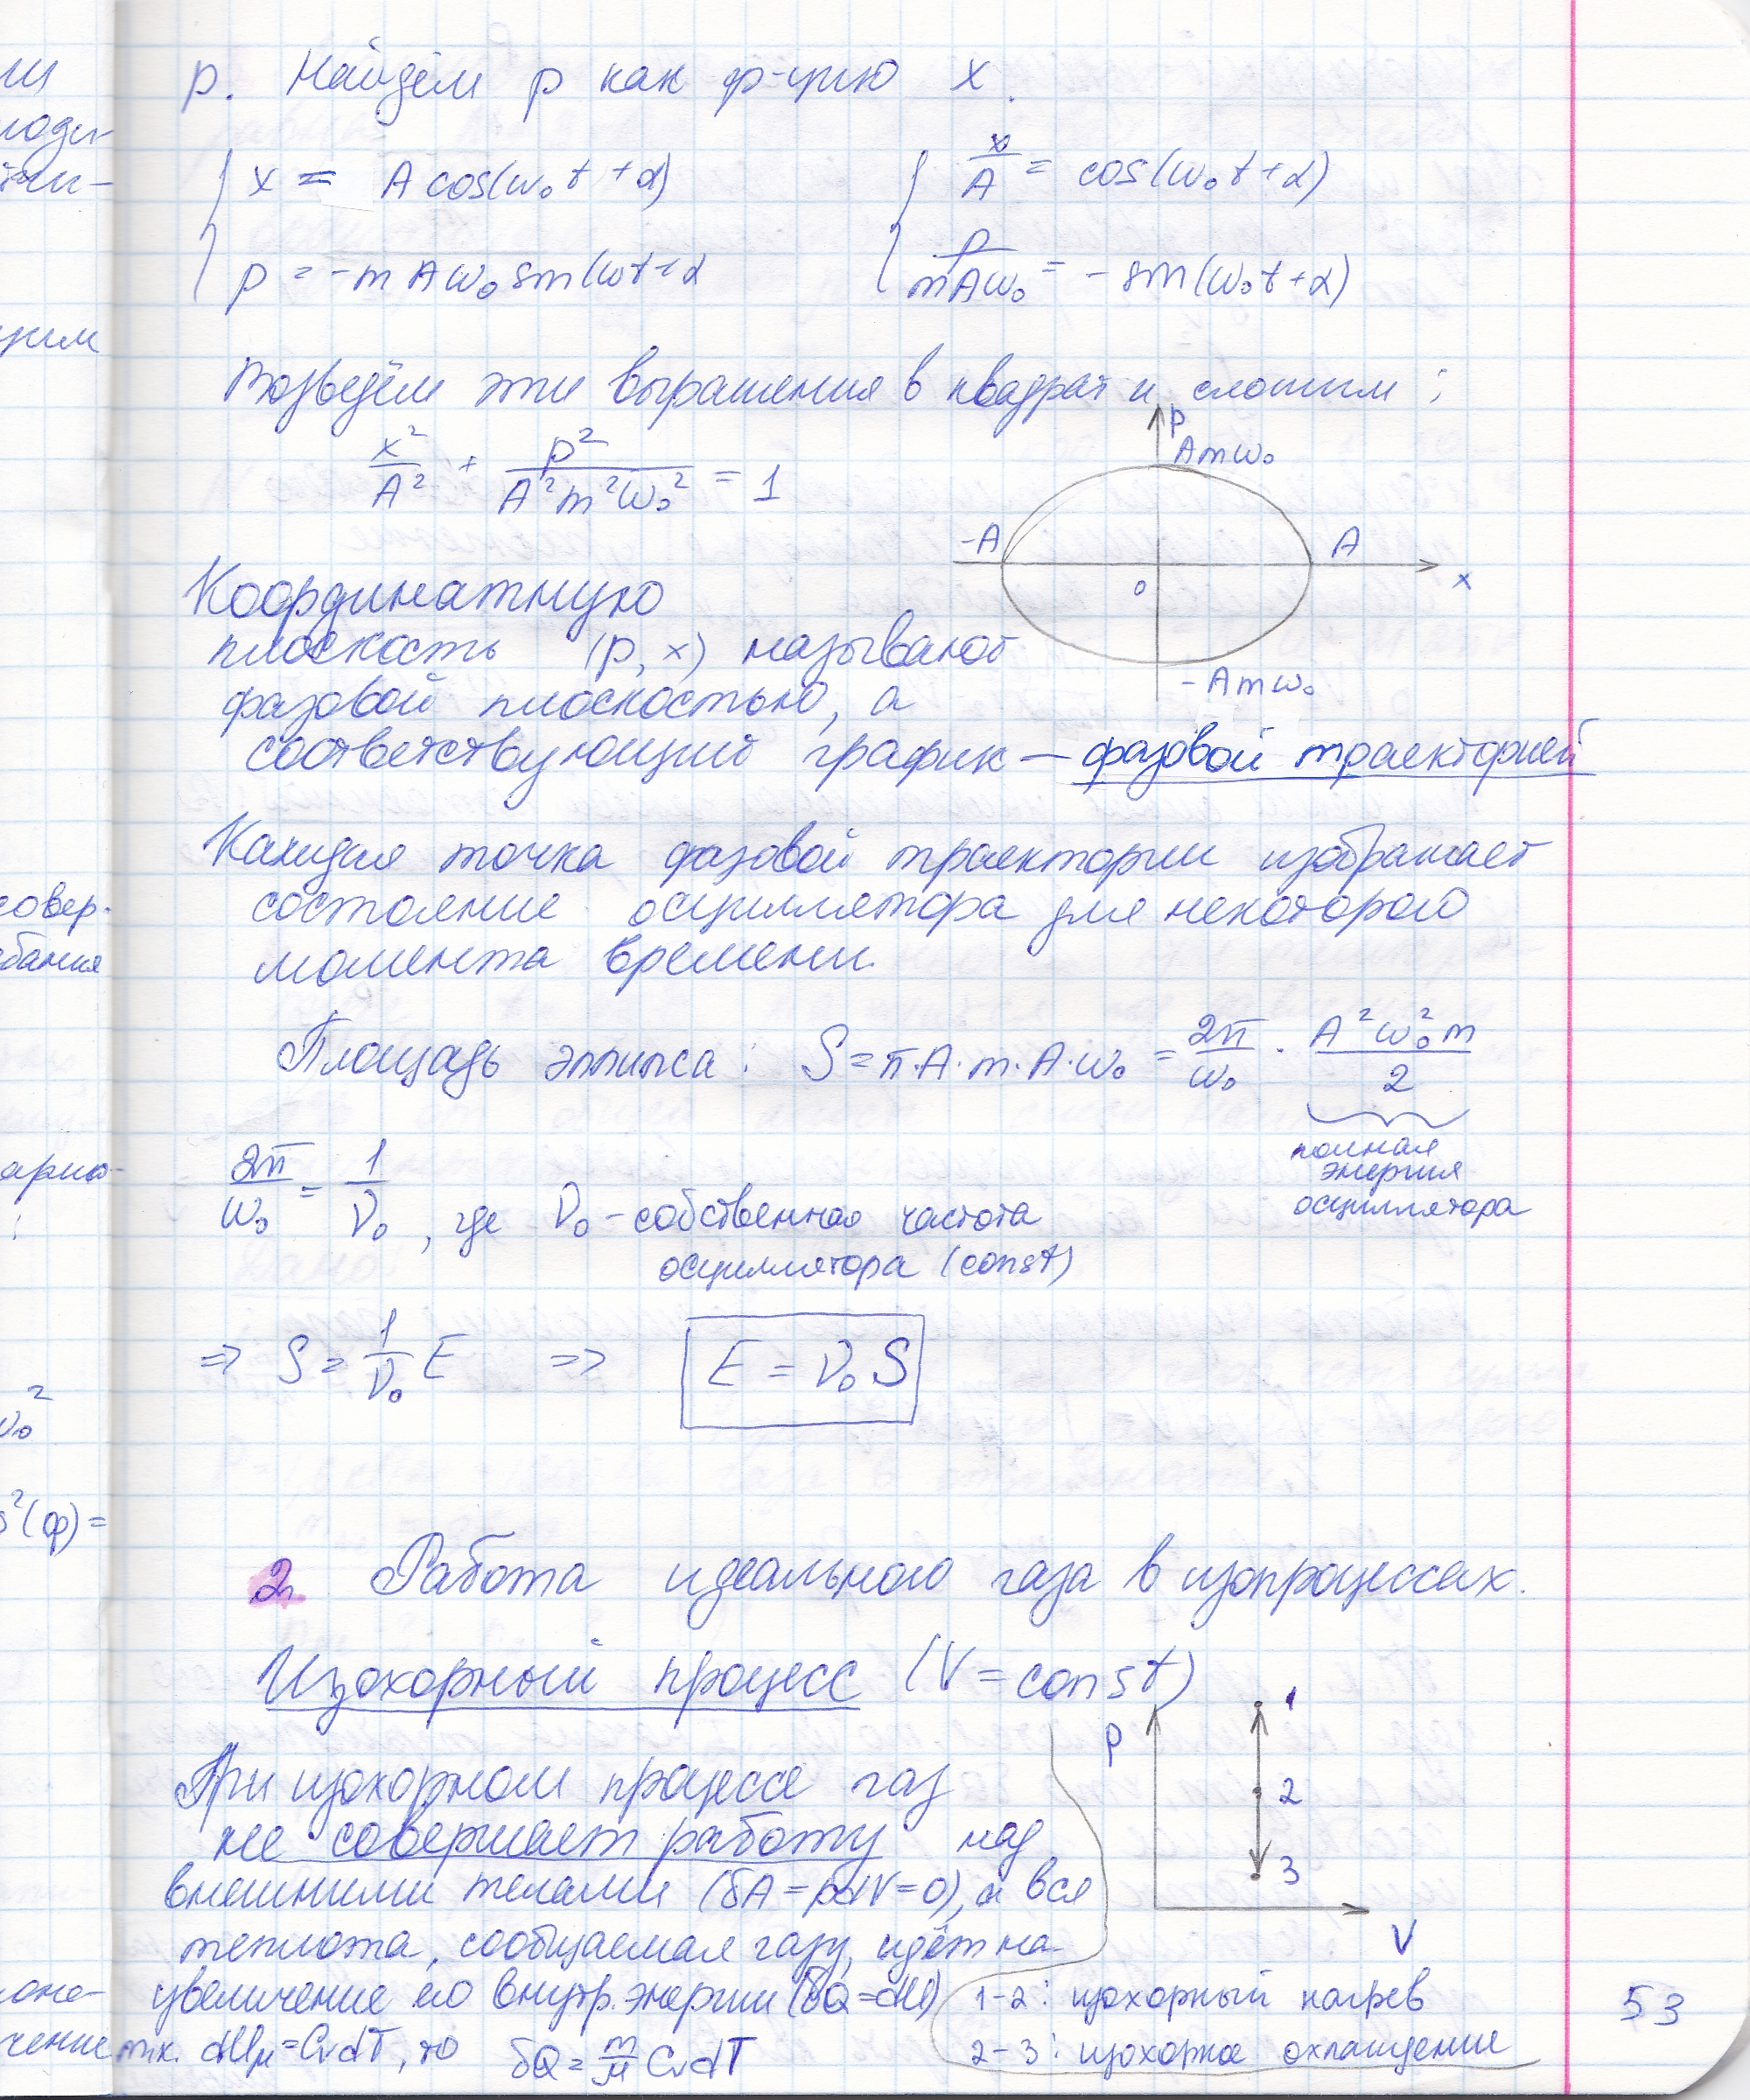 p. Найдём p как ф-цию x.
{ x = A cos(ω₀t + α)
p = -mAω₀ sin(ωt + α
{ x/A = cos(ω₀t + α)
p/mAω₀ = - sin(ω₀t + α)
Возведём эти выражения в квадрат и сложим:
x²/A² + p²/A²m²ω₀² = 1
p
Amω₀
-A
A
0
x
-Amω₀
Координатную
плоскость (p, x) называют
фазовой плоскостью, а
соответствующий график — фазовой траекторией
Каждая точка фазовой траектории изображает
состояние осциллятора для некоторого
момента времени.
Площадь эллипса: S = π·A·m·A·ω₀ = 2π/ω₀ · A²ω₀²m/2
полная
энергия
осциллятора
2π/ω₀ = 1/ν₀, где ν₀ - собственная частота
осциллятора (const)
⇒ S = 1/ν₀ E ⇒ E = ν₀S
2. Работа идеального газа в изопроцессах.
Изохорный процесс (V = const)
p
1
2
3
V
При изохорном процессе газ
не совершает работу над
внешними телами (δA = pdV = 0), и вся
теплота, сообщаемая газу, идёт на
увеличение его внутр. энергии (δQ = dU)
т.к. dUμ = CvdT, то δQ = m/μ CvdT
1-2: изохорный нагрев
2-3: изохорное охлаждение
53